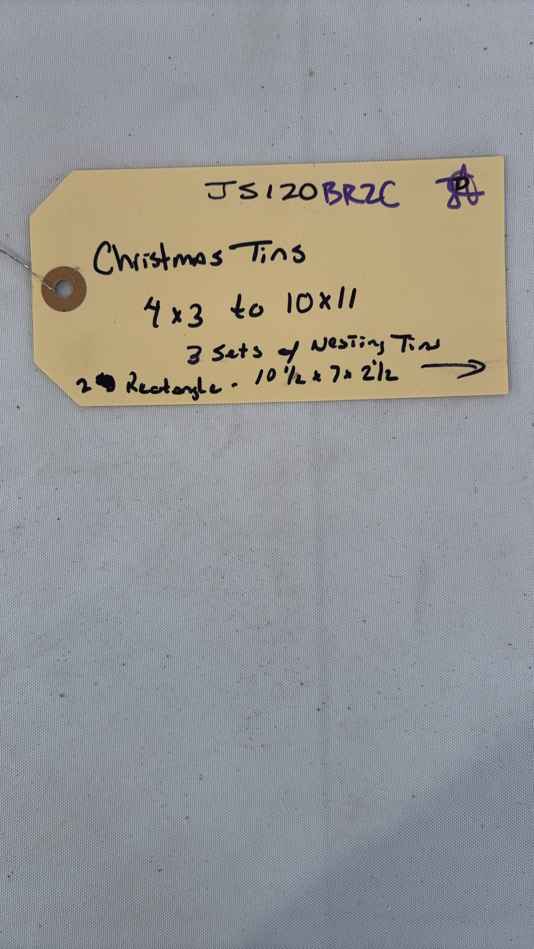 JS120BR2C
Christmas Tins
4 x 3 to 10 x 11
3 Sets of Nesting Tins
2 Rectangle - 10 1/2 x 7 x 2 1/2 →